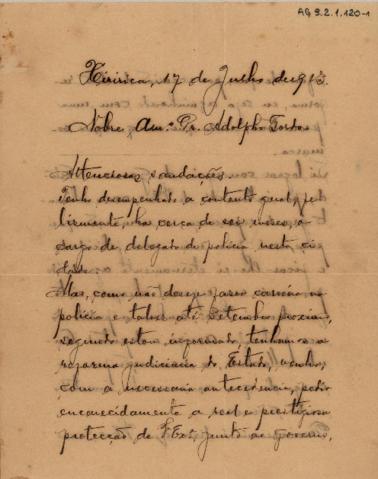 AG 9.2.1.120-1
Xiririca, 17 de Julho de 913.
Nobre Am.º Dr. Adolpho Gordo
Attenciosas saudações.
Tenho desempenhado a contento geral, fe-
lizmente, ha cerca de seis meses, o
cargo de delegado de policia nesta ci-
dade.
Mas, como não desejo fazer carreira na
policia e talvez até Setembro proximo,
segundo estou informado, tenhamos a
reforma judiciaria do Estado, venho,
com a necessaria antecedencia, pedir
encarecidamente a real e prestigiosa
protecção de V. Exc. junto ao governo,